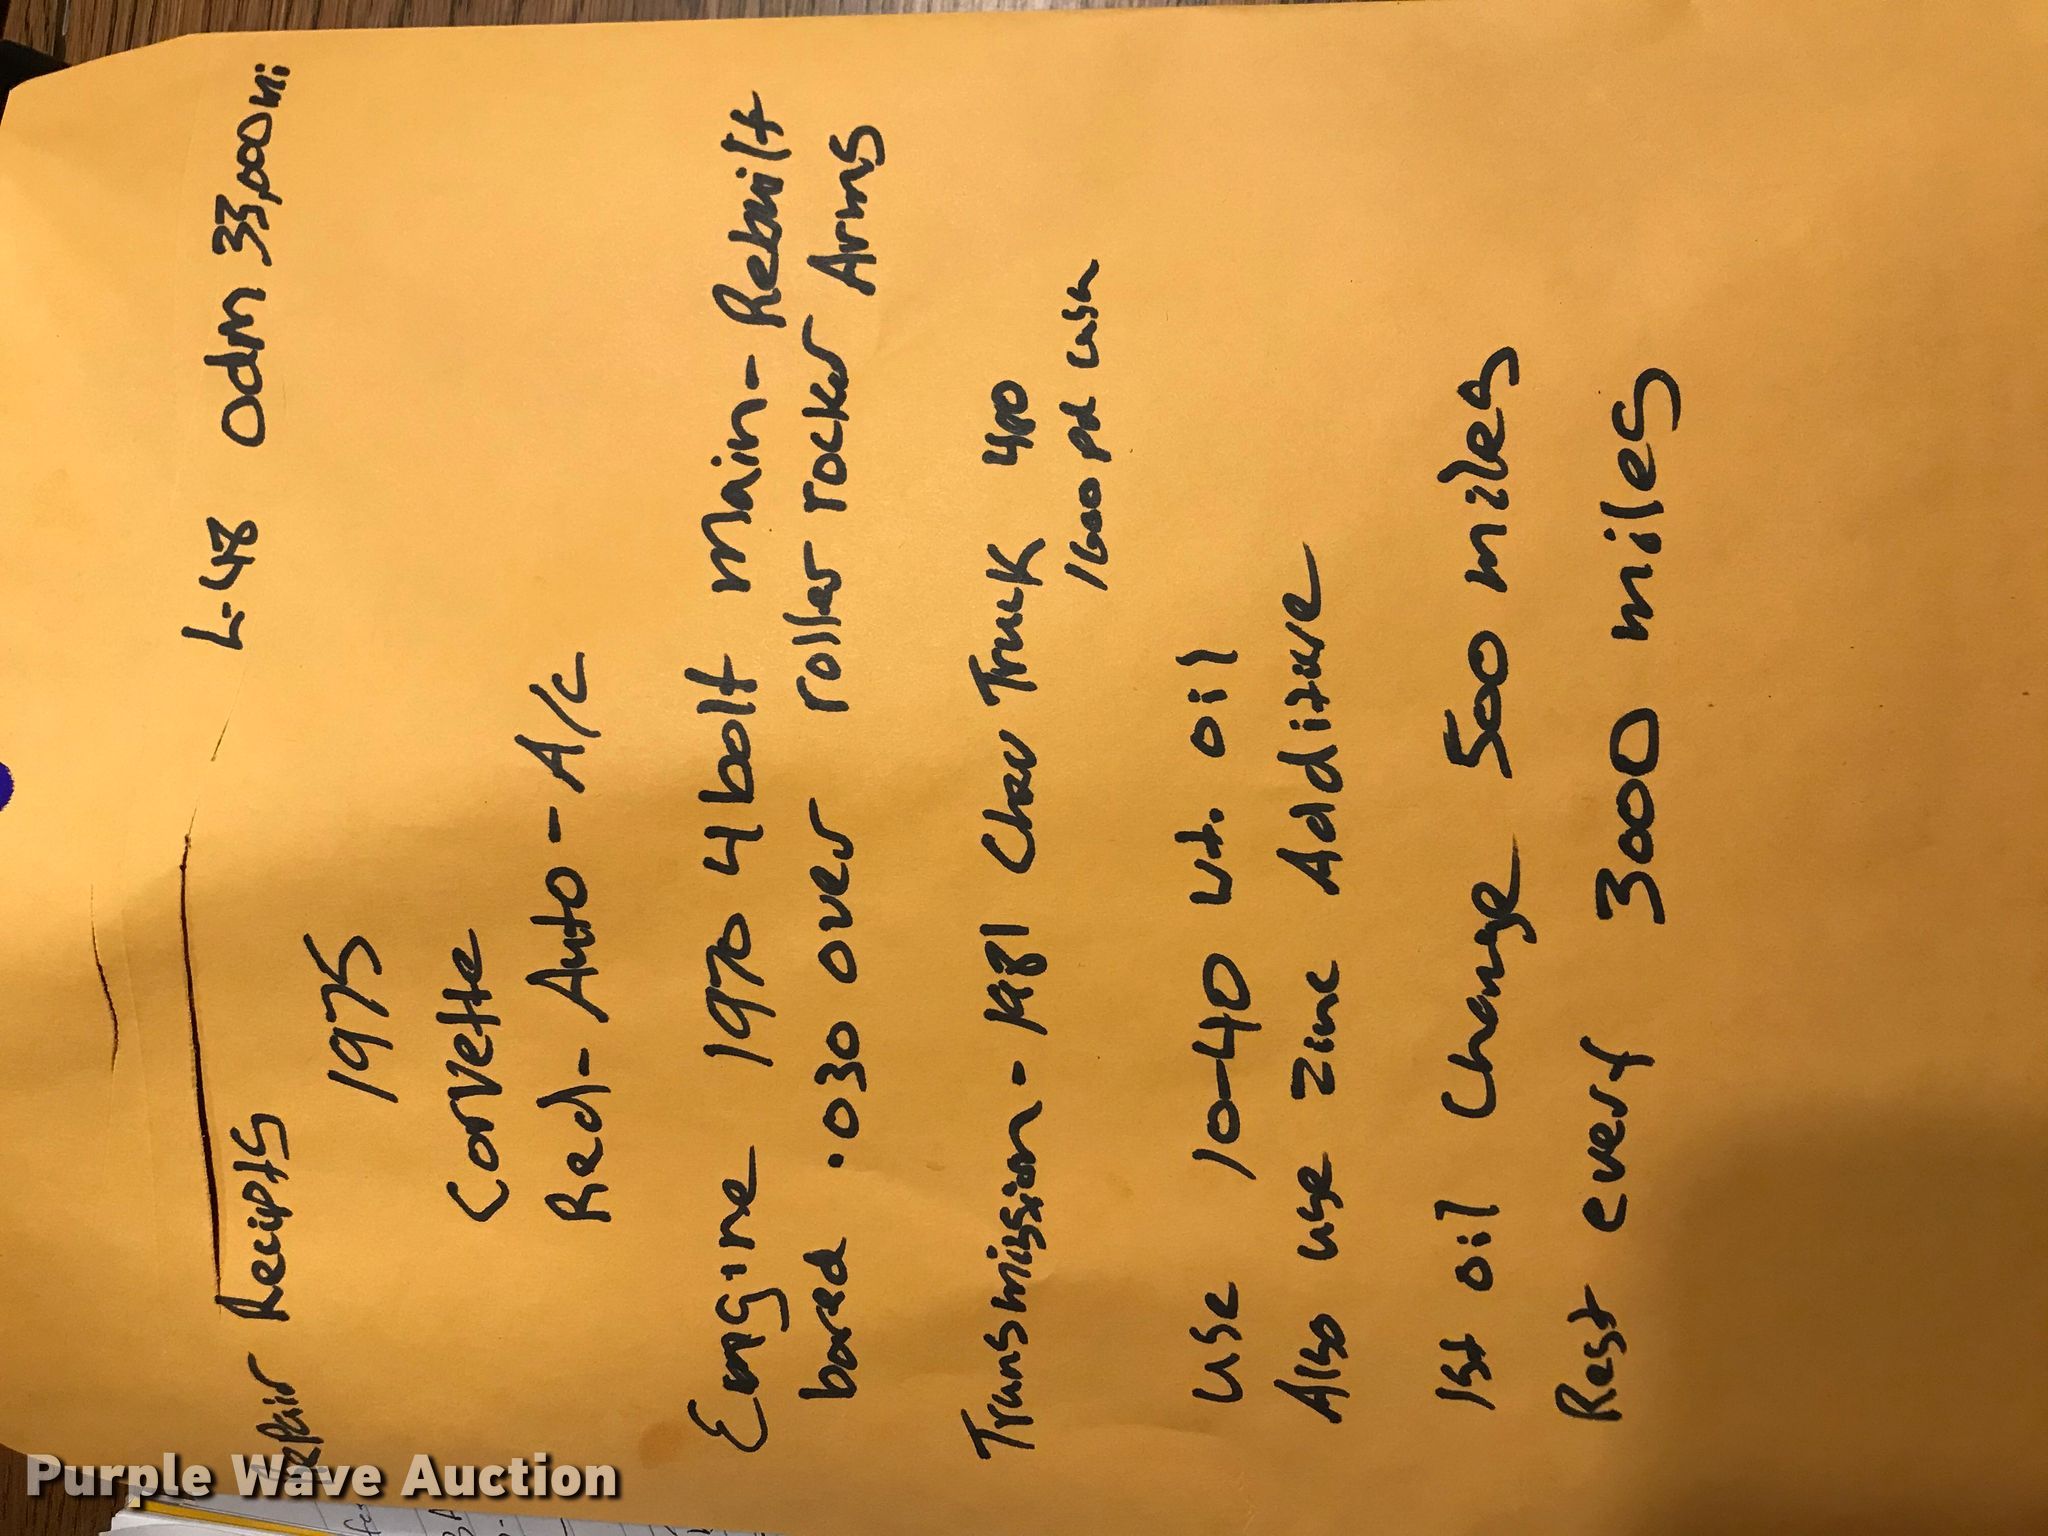 L-48 Odm 33,000 mi
repair Recipts
1975
Corvette
Red - Auto - A/C
Engine 1970 4 bolt main - Rebuilt
bored .030 over roller rocker Arms
Transmission - 1981 Chev Truck 400
1600 pd
use 10-40 wt. oil
Also use Zinc Additive
1st oil Change 500 miles
Rest every 3000 miles
Purple Wave Auction